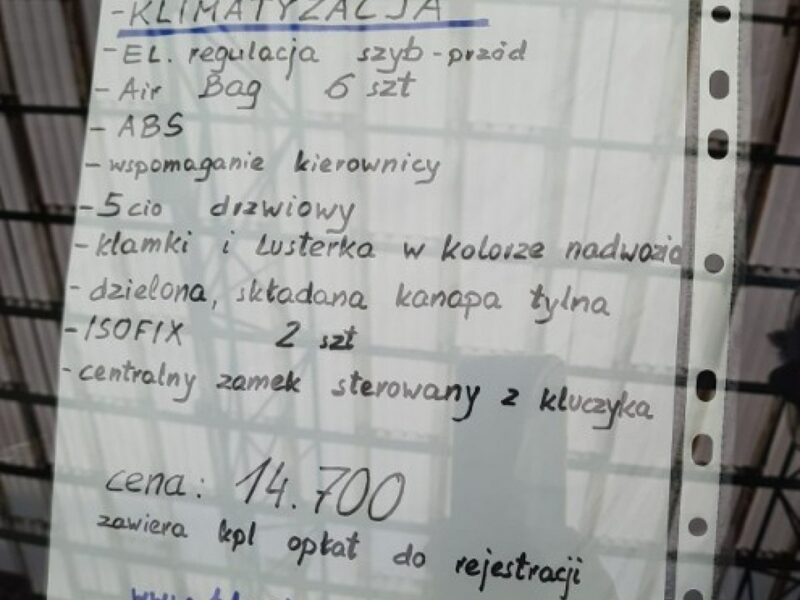 -KLIMATYZACJA
-EL. regulacja szyb-przód
- Air Bag 6 szt
- ABS
- wspomaganie kierownicy
-5cio drzwiowy
-klamki i lusterka w kolorze nadwozia
- dzielona, składana kanapa tylna
-ISOFIX 2 szt
-centralny zamek sterowany z kluczyka
cena: 14.700
zawiera kpl opłat do rejestracji